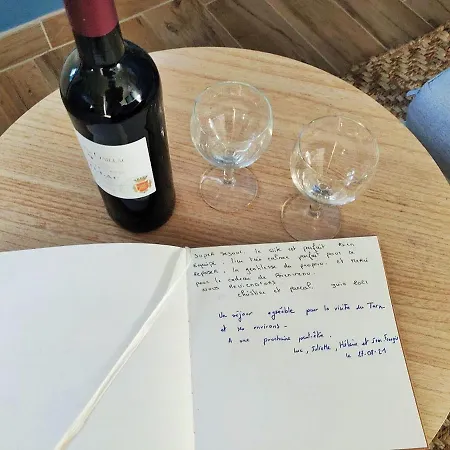 SUPER SEJOUR. le site est parfait BIEN
EQUIPE. Lieu très calme parfait pour se
REPOSER. la gentillesse du proprio. et MERCI
pour le cadeau de BIENVENU.
NOUS REVIENDRONS
Christine et pascal. Juin 2021
Un séjour agréable pour la visite du Tarn
et ses environs.
A une prochaine peut-être.
Luc, Juliette, Hélène et Jean François
le 11.08.21